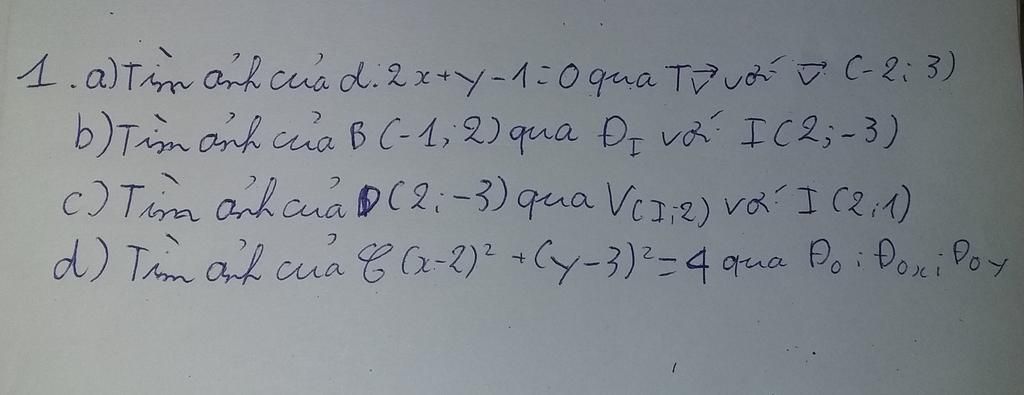 1. a) Tìm ảnh của d: 2x+y-1=0 qua Tv⃗ với v⃗ (-2; 3)
b) Tìm ảnh của B (-1; 2) qua Đ_I với I (2; -3)
c) Tìm ảnh của D (2; -3) qua V(I; 2) với I (2; 1)
d) Tìm ảnh của C (x-2)² + (y-3)² = 4 qua Đ_O; Đ_Ox; Đ_Oy